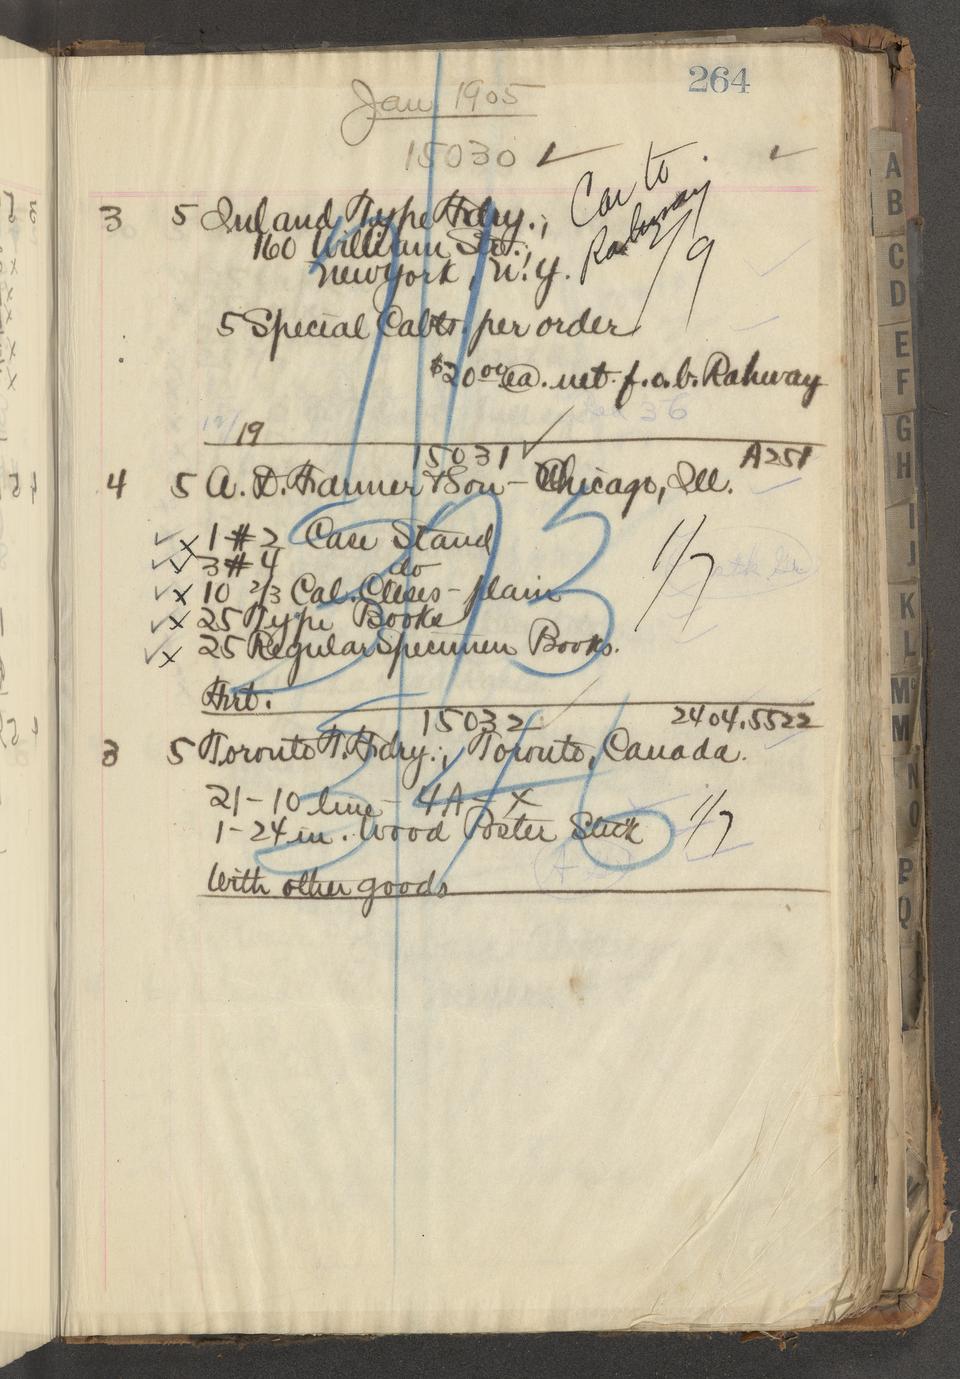 264
Jan 1905
15030 ✓
3 5 Inland Type Fdry.;
160 William St.;
New York, N.Y.
Car to
Rahway
1/9
5 Special Cabts. per order
$20.00 ea. net. f.o.b. Rahway
12/19
15031 ✓ A251
4 5 A. D. Farmer & Son - Chicago, Ill.
1 # 2 Case Stand
3 # 4 do
10 2/3 Cal. Cases - plain
25 Type Books
25 Regular Specimen Books.
1/7
Frt.
593
15032 2404.5522
3 5 Toronto T. Fdry.; Toronto, Canada.
21 - 10 line - 4A - X
1 - 24 in. Wood Poster Stick
1/7
With other goods
A
B
C
D
E
F
G
H
I
J
K
L
Mc
M
N
O
P
Q